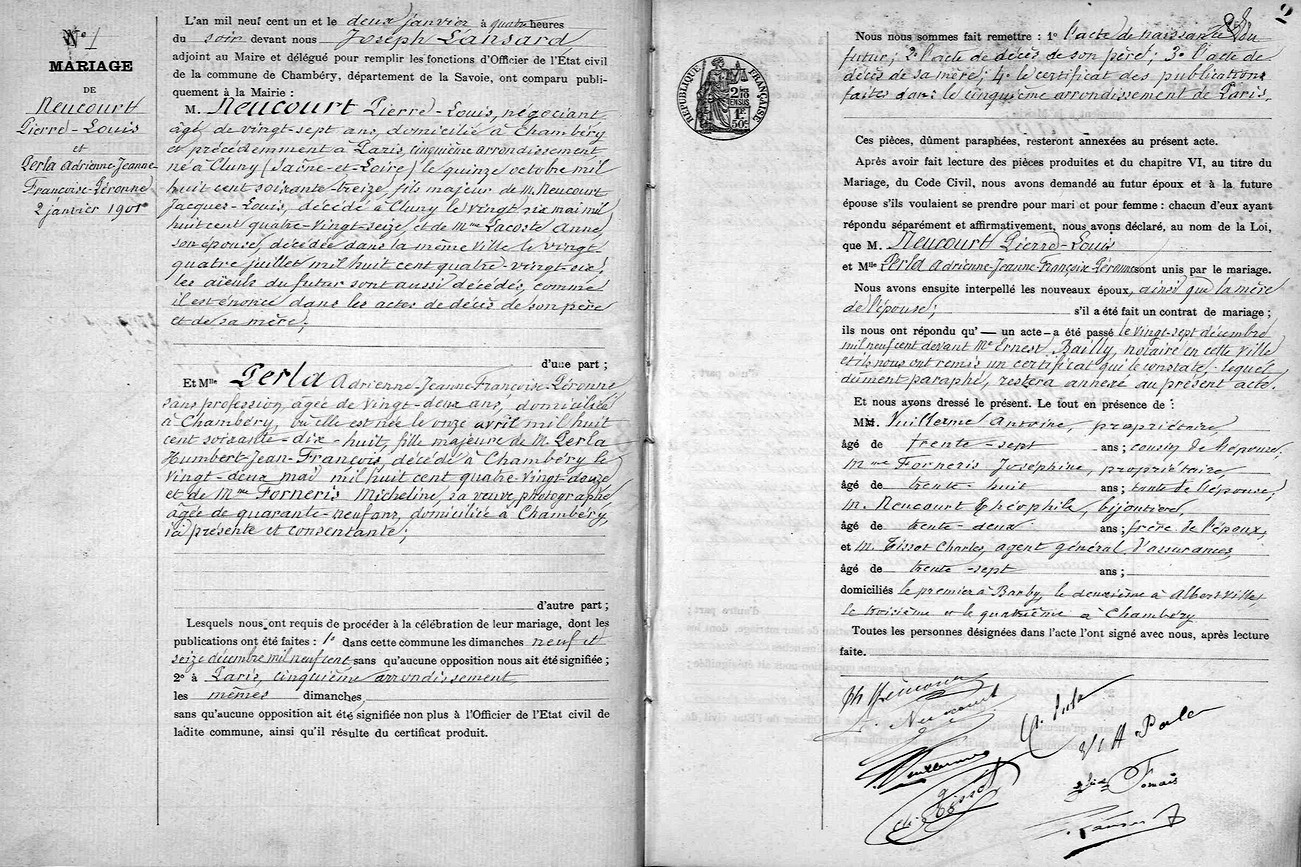 N° 1
MARIAGE
DE
Neucourt
Pierre-Louis
et
Perla Adrienne-Jeanne-
Françoise-Péronne
2 janvier 1901
L'an mil neuf cent un et le deux janvier à quatre heures
du soir devant nous Joseph Lansard
adjoint au Maire et délégué pour remplir les fonctions d'Officier de l'Etat civil
de la commune de Chambéry, département de la Savoie, ont comparu publi-
quement à la Mairie :
M. Neucourt Pierre-Louis, négociant,
âgé de vingt-sept ans, domicilié à Chambéry
et précédemment à Paris, cinquième arrondissement,
né à Cluny (Saône-et-Loire) le quinze octobre mil
huit cent soixante-treize, fils majeur de M. Neucourt
Jacques-Louis, décédé à Cluny le vingt six mai mil
huit cent quatre-vingt-seize, et de Mme Lacoste Anne,
son épouse, décédée dans la même ville le vingt-
quatre juillet mil huit cent quatre-vingt-six;
les aïeuls du futur sont aussi décédés, comme
il est énoncé dans les actes de décès de son père
et de sa mère;
d'une part ;
Et Mlle Perla Adrienne-Jeanne-Françoise-Péronne
sans profession, âgée de vingt-deux ans, domiciliée
à Chambéry, où elle est née le onze avril mil huit
cent soixante-dix-huit, fille majeure de M. Perla
Humbert-Jean-François, décédé à Chambéry le
vingt-deux mai mil huit cent quatre-vingt-douze
et de Mme Forneris Micheline, sa veuve, photographe,
âgée de quarante-neuf ans, domiciliée à Chambéry,
ici présente et consentante;
d'autre part ;
Lesquels nous ont requis de procéder à la célébration de leur mariage, dont les
publications ont été faites : 1° dans cette commune les dimanches neuf et
seize décembre mil neuf cent, sans qu'aucune opposition nous ait été signifiée ;
2° à Paris, cinquième arrondissement
les mêmes dimanches,
sans qu'aucune opposition ait été signifiée non plus à l'Officier de l'Etat civil de
ladite commune, ainsi qu'il résulte du certificat produit.
2
RÉPUBLIQUE FRANÇAISE
2/10
EN SUS
1F
50C
Nous nous sommes fait remettre : 1° l'acte de naissance du
futur; 2° l'acte de décès de son père; 3° l'acte de
décès de sa mère; 4° le certificat des publications
faites dans le cinquième arrondissement de Paris.
Ces pièces, dûment paraphées, resteront annexées au présent acte.
Après avoir fait lecture des pièces produites et du chapitre VI, au titre du
Mariage, du Code Civil, nous avons demandé au futur époux et à la future
épouse s'ils voulaient se prendre pour mari et pour femme : chacun d'eux ayant
répondu séparément et affirmativement, nous avons déclaré, au nom de la Loi,
que M. Neucourt Pierre-Louis
et Mlle Perla Adrienne-Jeanne-Françoise-Péronne sont unis par le mariage.
Nous avons ensuite interpellé les nouveaux époux, ainsi que la mère
de l'épouse; s'il a été fait un contrat de mariage ;
ils nous ont répondu qu'— un acte — a été passé le vingt-sept décembre
mil neuf cent devant Me Ernest Bailly, notaire en cette ville
et ils nous ont remis un certificat qui le constate, lequel
dûment paraphé, restera annexé au présent acte.
Et nous avons dressé le présent. Le tout en présence de :
MM. Vuillerme Antoine, propriétaire,
âgé de trente-sept ans ; cousin de l'épouse,
Mme Forneris Joséphine, propriétaire
âgé de trente-huit ans ; tante de l'épouse;
M. Neucourt Théophile, bijoutier,
âgé de trente-deux ans ; frère de l'époux,
et M. Tissot Charles, agent général d'assurances,
âgé de trente-sept ans ;
domiciliés le premier à Barby, le deuxième à Albertville,
le troisième et le quatrième à Chambéry
Toutes les personnes désignées dans l'acte l'ont signé avec nous, après lecture
faite.
L. Neucourt
A. Perla
Vve Perla
Vuillerme
Ch. Tissot
J. Lansard